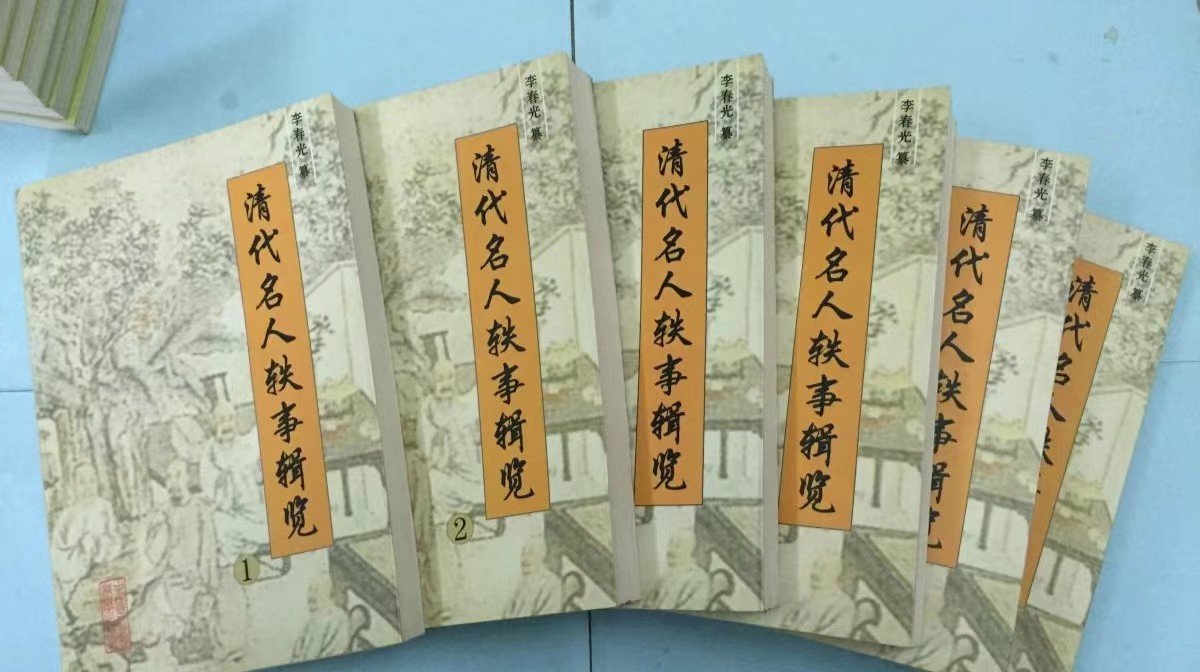 李春光 纂
清代名人轶事辑览
1
李春光 纂
清代名人轶事辑览
2
李春光 纂
清代名人轶事辑览
李春光 纂
清代名人轶事辑览
李春光 纂
清代名人轶事辑览
李春光 纂
清代名人轶